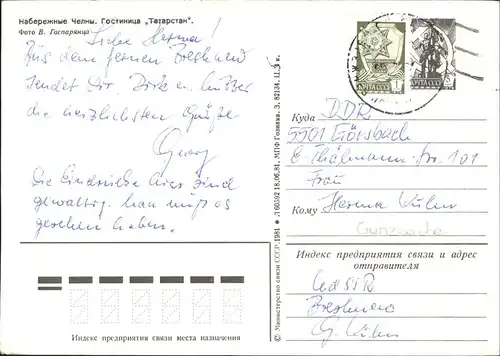 Набережные Челны. Гостиница „Татарстан".
Фото В. Гаспарянца
Liebe Herma!
Aus dem fernen Breshnew
sendet Dir, Dirk u. Mutter
die herzlichsten Grüße
Georg
Die Eindrücke hier sind
gewaltig. Man muß es
gesehen haben.
Индекс предприятия связи места назначения
© Министерство связи СССР. 1981 Л 60592 18.06.81. МПФ Гознака. З. 82134. Ц. 3 к.
Куда DDR
5501 Görsbach
E. Thälmann-Str. 101
Frau
Кому Herma Kühn
Индекс предприятия связи и адрес
отправителя
UdSSR
Breshnew
G. Kühn